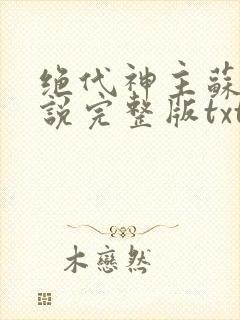 绝代神主蘇
說完整版txt
木戀然